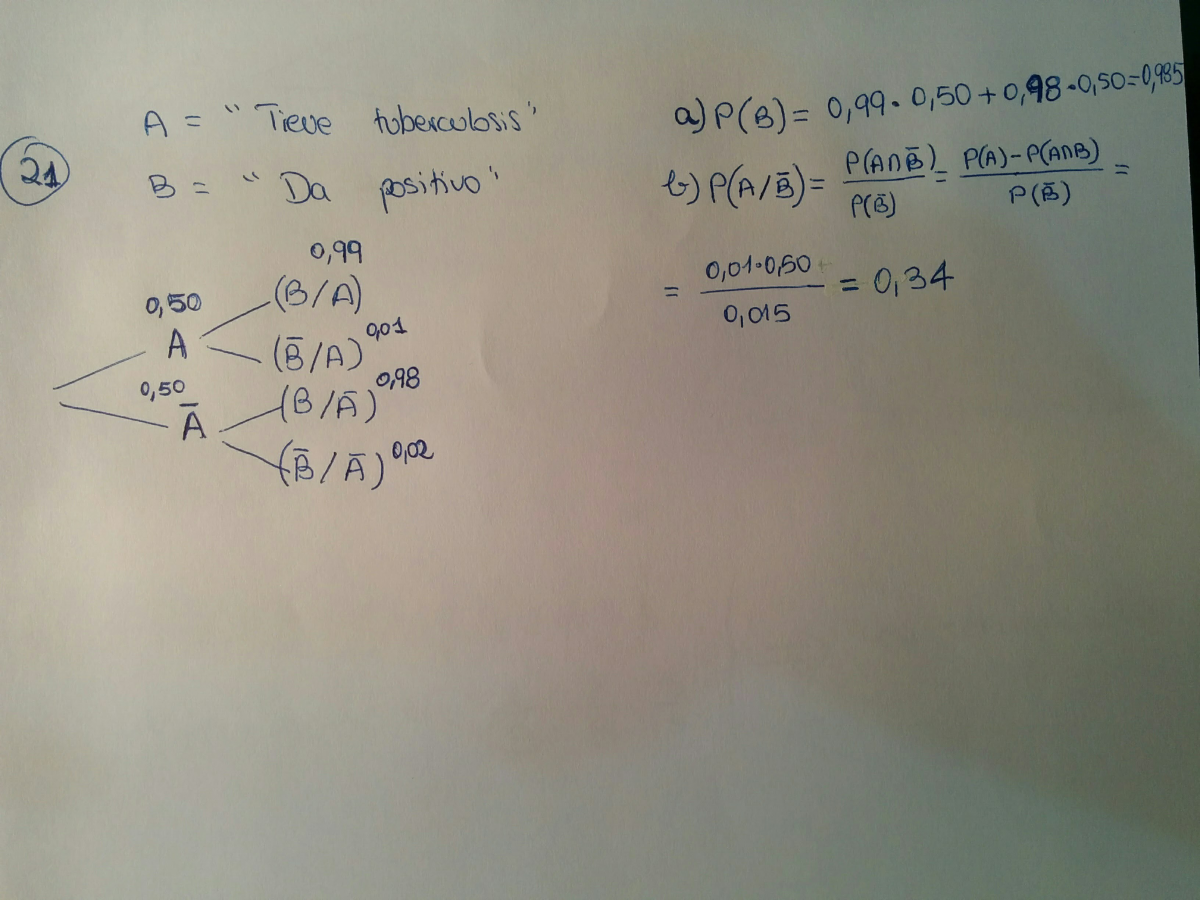 21
A = "Tiene tuberculosis"
B = "Da positivo"
0,50
A
0,99
(B/A)
(B̅/A) 0,01
0,50
A̅
(B/A̅) 0,98
(B̅/A̅) 0,02
a) P(B) = 0,99 · 0,50 + 0,98 · 0,50 = 0,985
b) P(A/B̅) = P(A∩B̅) / P(B̅) = P(A) - P(A∩B) / P(B̅) =
= 0,01·0,50 / 0,015 = 0,34